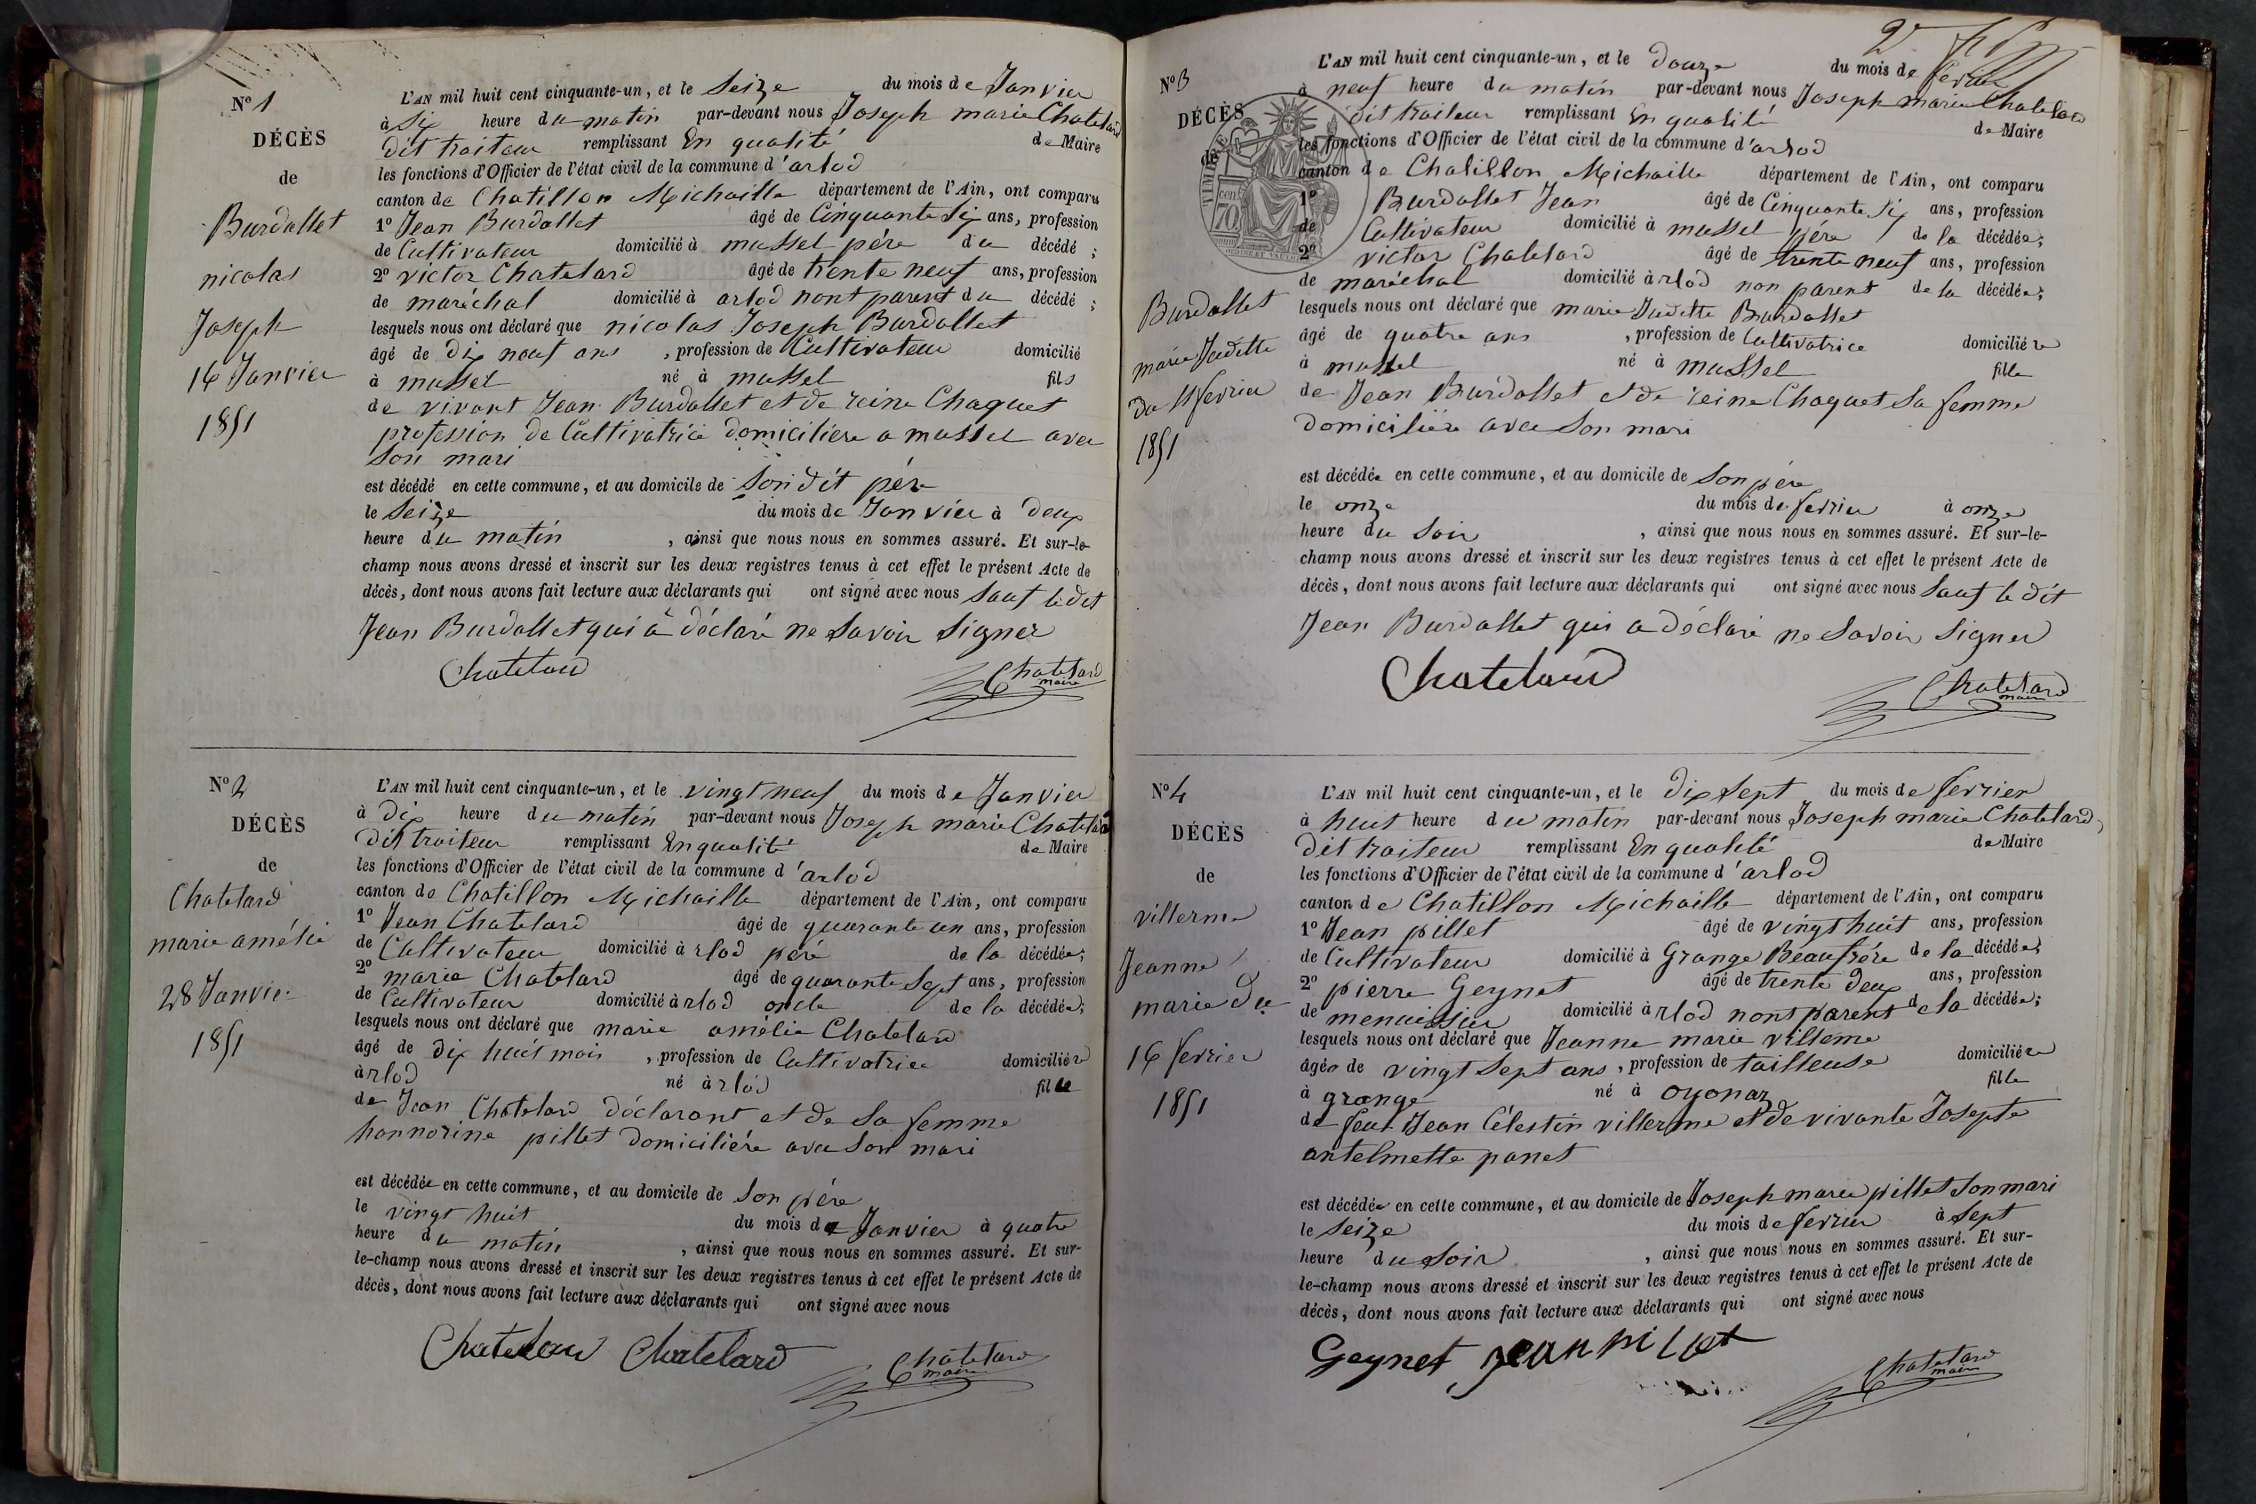 N° 1
DÉCÈS
de
Burdallet
nicolas
Joseph
16 Janvier
1851
L'AN mil huit cent cinquante-un, et le Seize du mois de Janvier
à Six heure du matin par-devant nous Joseph marie Chatelard
dit traiteur remplissant En qualité de Maire
les fonctions d'Officier de l'état civil de la commune d'arlod
canton de Chatillon Michaille département de l'Ain, ont comparu
1° Jean Burdallet âgé de Cinquante Six ans, profession
de Cultivateur domicilié à mussel père du décédé ;
2° victor Chatelard âgé de trente neuf ans, profession
de maréchal domicilié à arlod nont parent du décédé ;
lesquels nous ont déclaré que nicolas Joseph Burdallet
âgé de dix neuf ans , profession de Cultivateur domicilié
à mussel né à mussel fils
de vivant Jean Burdallet et de reine Chaquet
profession de Cultivatrice domiciliere a mussel avec
son mari
est décédé en cette commune, et au domicile de Son dit père
le Seize du mois de Janvier à deux
heure du matin , ainsi que nous nous en sommes assuré. Et sur-le-
champ nous avons dressé et inscrit sur les deux registres tenus à cet effet le présent Acte de
décès, dont nous avons fait lecture aux déclarants qui ont signé avec nous Sauf le dit
Jean Burdallet qui à déclaré ne Savoir Signer
Chatelard Chatelard
maire
N° 2
DÉCÈS
de
Chatelard
marie amélie
28 Janvier
1851
L'AN mil huit cent cinquante-un, et le vingt neuf du mois de Janvier
à dix heure du matin par-devant nous Joseph marie Chatelard
dit traiteur remplissant En qualité de Maire
les fonctions d'Officier de l'état civil de la commune d'arlod
canton de Chatillon Michaille département de l'Ain, ont comparu
1° Jean Chatelard âgé de quarante un ans, profession
de Cultivateur domicilié à rlod père de la décédée;
2° marie Chatelard âgé de quarante Sept ans, profession
de Cultivateur domicilié à rlod oncle de la décédée;
lesquels nous ont déclaré que marie amélie Chatelard
âgé de dix huit mois , profession de Cultivatrice domicilière
à rlod né à rlod fille
de Jean Chatelard déclarant et de Sa femme
honnorine pillet domicilière avec Son mari
est décédée en cette commune, et au domicile de Son père
le vingt huit du mois de Janvier à quatre
heure du matin , ainsi que nous nous en sommes assuré. Et sur-
le-champ nous avons dressé et inscrit sur les deux registres tenus à cet effet le présent Acte de
décès, dont nous avons fait lecture aux déclarants qui ont signé avec nous
Chatelard Chatelard Chatelard
maire
N° 3
DÉCÈS
de
Burdallet
marie Judette
du 11 fevrier
1851
L'AN mil huit cent cinquante-un, et le douze du mois de fevrier
à neuf heure du matin par-devant nous Joseph marie Chatelard
dit traiteur remplissant En qualité de Maire
les fonctions d'Officier de l'état civil de la commune d'arlod
canton de Chatillon Michaille département de l'Ain, ont comparu
1° Burdallet Jean âgé de Cinquante Six ans, profession
de Cultivateur domicilié à mussel père de la décédée;
2° victor Chatelard âgé de trente neuf ans, profession
de maréchal domicilié à rlod non parent de la décédée;
lesquels nous ont déclaré que marie Judette Burdallet
âgé de quatre ans , profession de Cultivatrice domicilière
à mussel né à mussel fille
de Jean Burdallet et de reine Chaquet Sa femme
domicilière avec Son mari
est décédée en cette commune, et au domicile de Son père
le onze du mois de fevrier à onze
heure du Soir , ainsi que nous nous en sommes assuré. Et sur-le-
champ nous avons dressé et inscrit sur les deux registres tenus à cet effet le présent Acte de
décès, dont nous avons fait lecture aux déclarants qui ont signé avec nous Sauf le dit
Jean Burdallet qui a déclaré ne Savoir Signer
Chatelard Chatelard
maire
N° 4
DÉCÈS
de
villerme
Jeanne
marie du
16 fevrier
1851
L'AN mil huit cent cinquante-un, et le dix Sept du mois de fevrier
à huit heure du matin par-devant nous Joseph marie Chatelard,
dit traiteur remplissant En qualité de Maire
les fonctions d'Officier de l'état civil de la commune d'arlod
canton de Chatillon Michaille département de l'Ain, ont comparu
1° Jean pillet âgé de vingt huit ans, profession
de Cultivateur domicilié à Grange Beaufrére de la décédée;
2° pierre Geynet âgé de trente deux ans, profession
de menuisier domicilié à rlod nont parent de la décédée;
lesquels nous ont déclaré que Jeanne marie villeme
âgée de vingt Sept ans , profession de tailleuse domicilière
à grange né à oyonaz fille
de feut Jean Célestin villerme et de vivante Josepte
antelmette panet
est décédée en cette commune, et au domicile de Joseph marie pillet Son mari
le Seize du mois de fevrier à Sept
heure du Soir , ainsi que nous nous en sommes assuré. Et sur-
le-champ nous avons dressé et inscrit sur les deux registres tenus à cet effet le présent Acte de
décès, dont nous avons fait lecture aux déclarants qui ont signé avec nous
Geynet Jean pillet Chatelard
maire